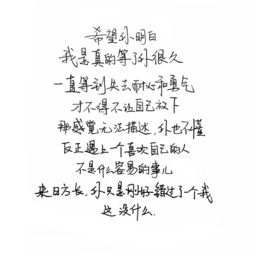 希望你明白
我是真的等了你很久
一直等到失去耐心和勇气
才不得不让自己放下
那感觉无法描述，你也不懂
反正遇上一个喜欢自己的人
不是什么容易的事儿
来日方长，你只是刚好错过了个我
这没什么.